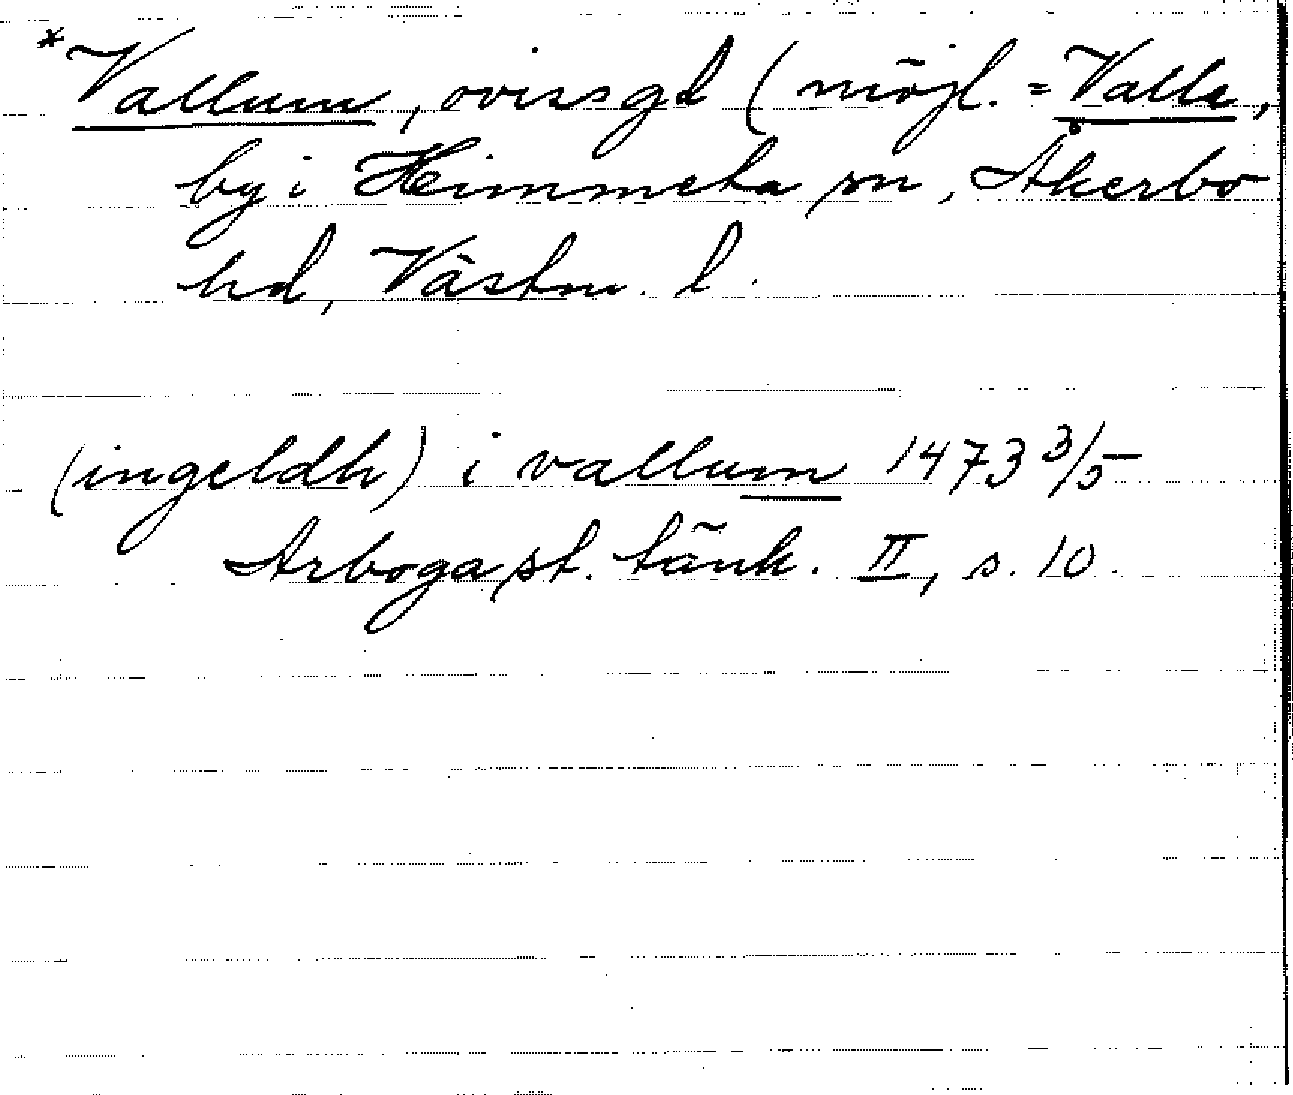 *Vallum, ovissgd (möjl. = Valla,
by i Himmeta sn, Åkerbo
hd, Västm. l.
(ingeldh) i vallum 1473 3/5
Arboga st. tänk. II, s. 10.